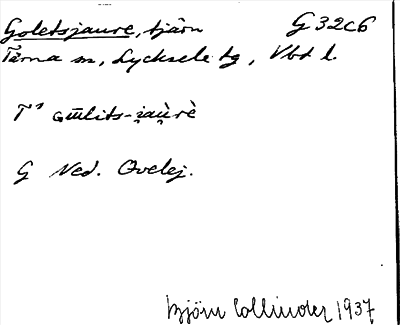 Goletsjaure, tjärn G32c6
Tärna sn, Lycksele tg, Vbt l.
G Ned. Ovelej.
Björn Collinder 1937